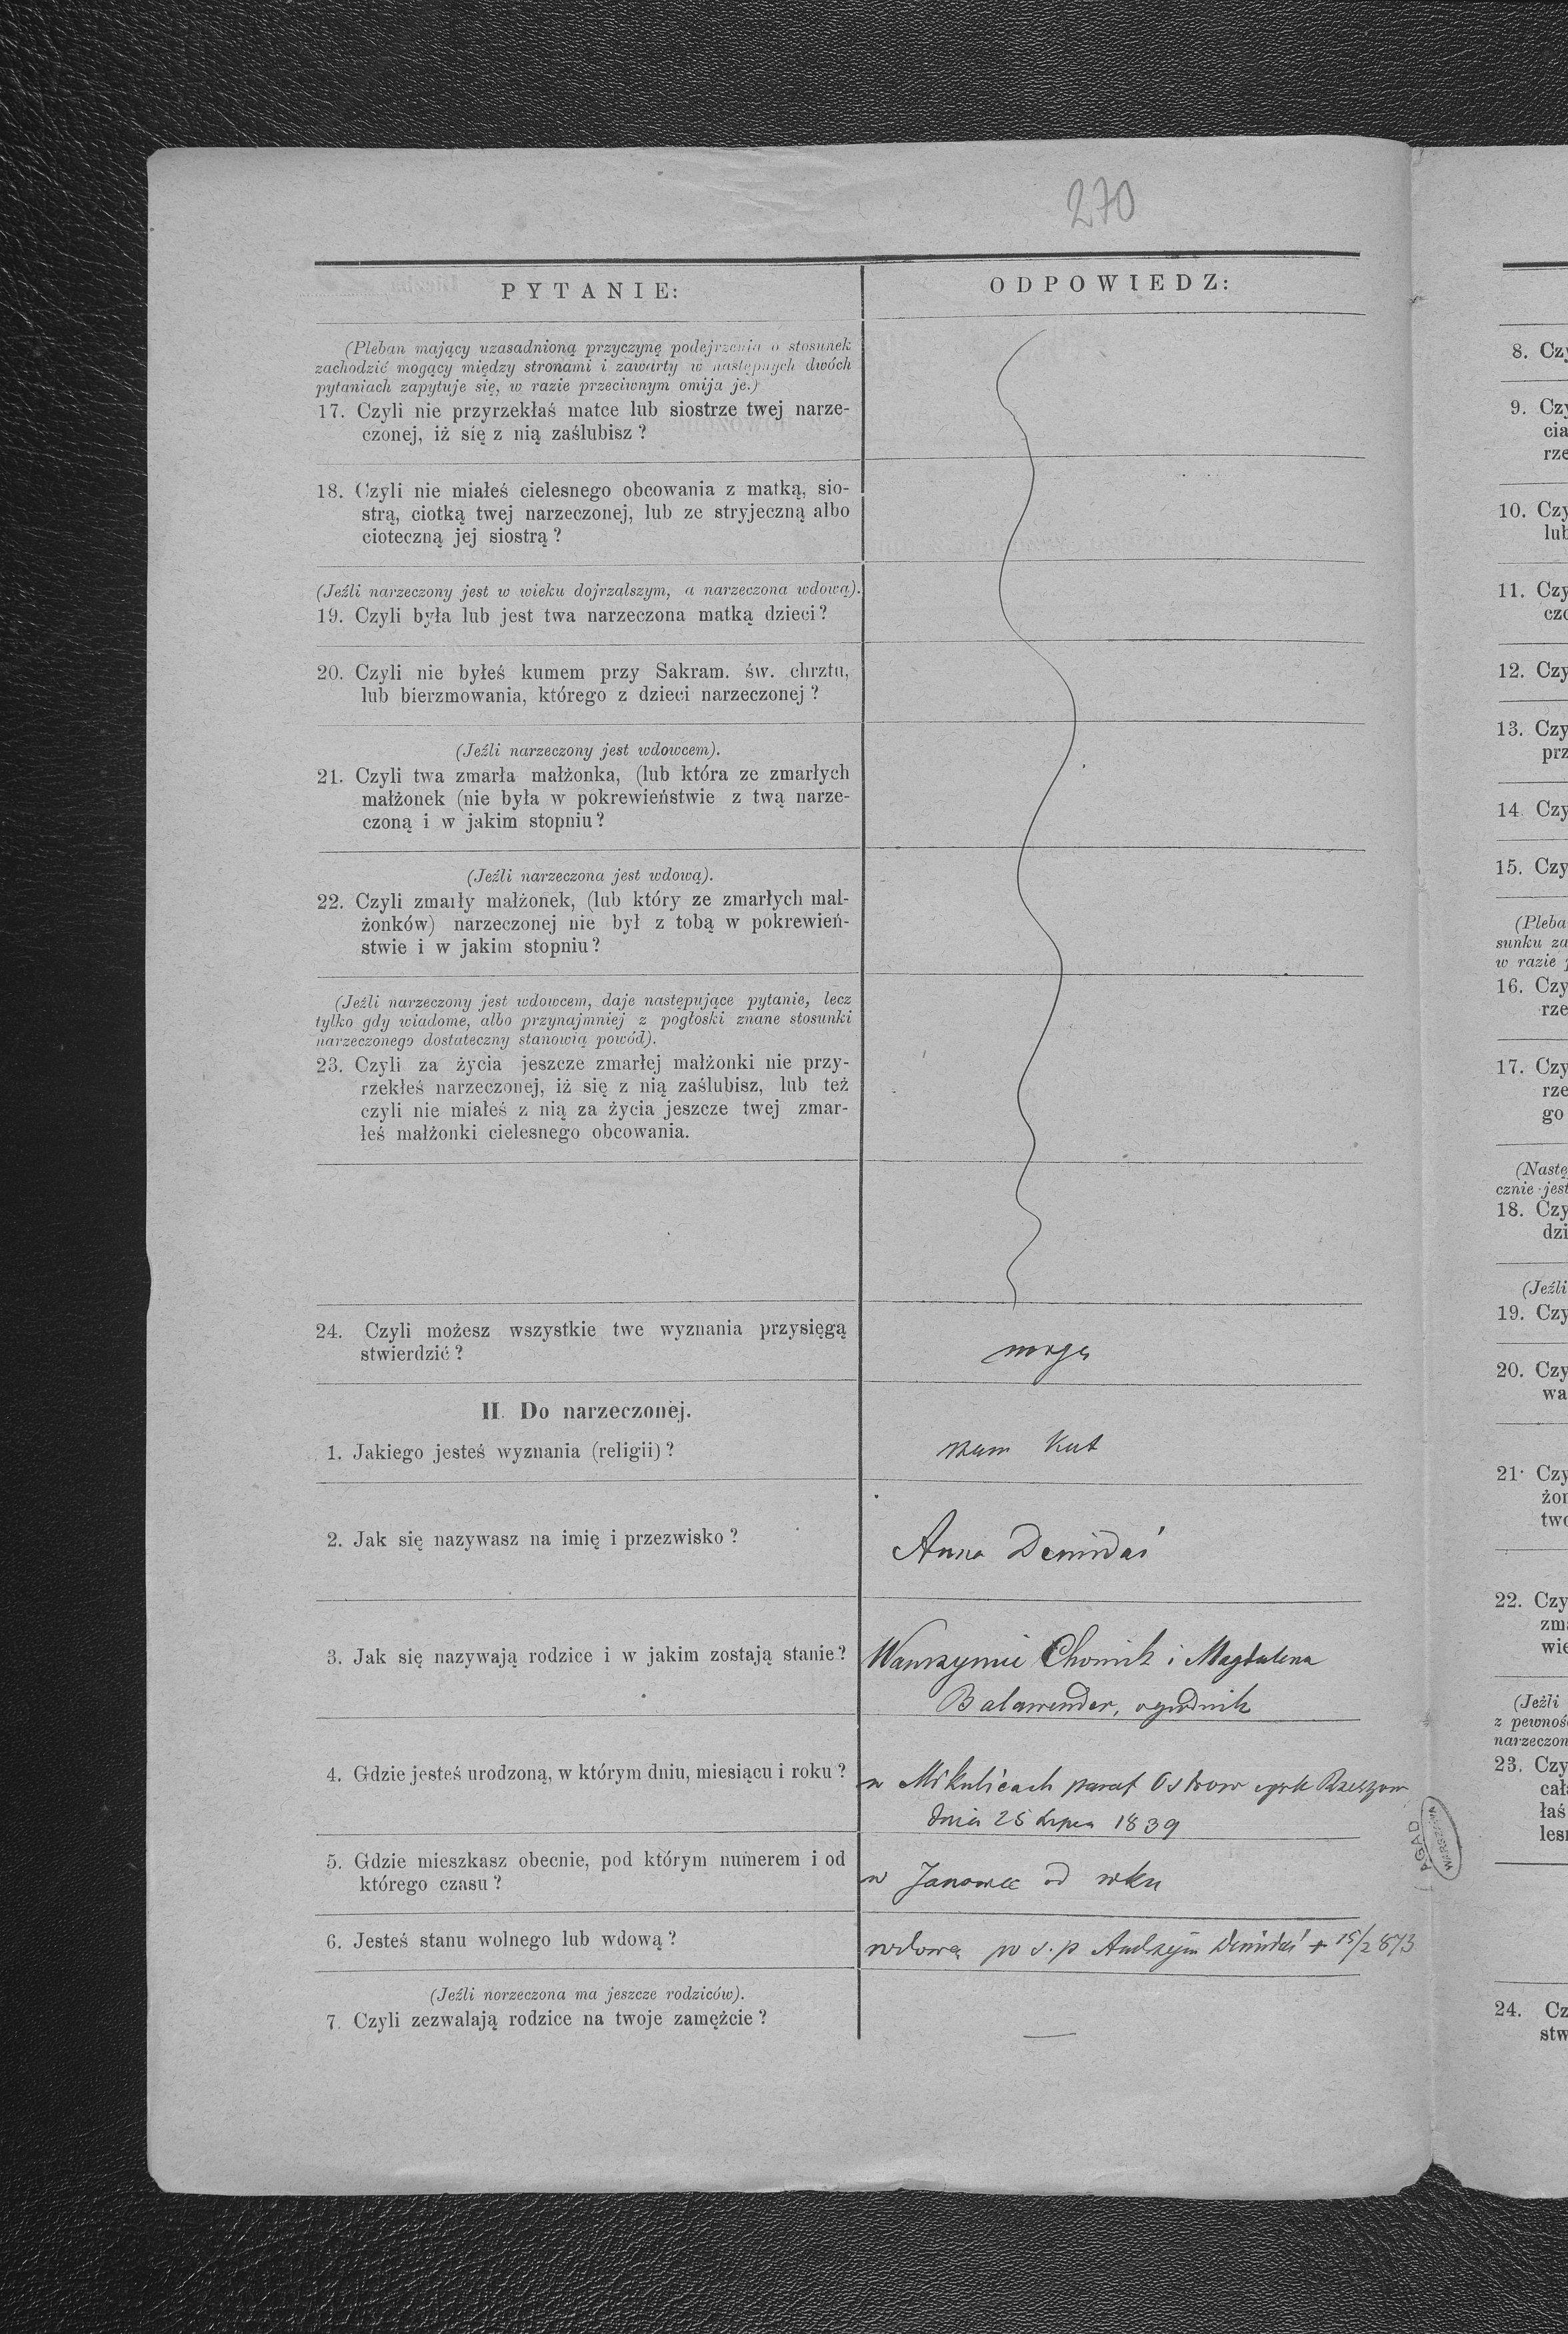 270
PYTANIE:
ODPOWIEDZ:
(Pleban mający uzasadnioną przyczynę podejrzenia o stosunek
zachodzić mogący między stronami i zawarty w następnych dwóch
pytaniach zapytuje się, w razie przeciwnym omija je.)
17. Czyli nie przyrzekłaś matce lub siostrze twej narze-
czonej, iż się z nią zaślubisz?
18. Czyli nie miałeś cielesnego obcowania z matką, sio-
strą, ciotką twej narzeczonej, lub ze stryjeczną albo
cioteczną jej siostrą?
(Jeźli narzeczony jest w wieku dojrzalszym, a narzeczona wdową).
19. Czyli była lub jest twa narzeczona matką dzieci?
20. Czyli nie byłeś kumem przy Sakram. św. chrztu,
lub bierzmowania, którego z dzieci narzeczonej?
(Jeźli narzeczony jest wdowcem).
21. Czyli twa zmarła małżonka, (lub która ze zmarłych
małżonek (nie była w pokrewieństwie z twą narze-
czoną i w jakim stopniu?
(Jeźli narzeczona jest wdową).
22. Czyli zmarły małżonek, (lub który ze zmarłych mał-
żonków) narzeczonej nie był z tobą w pokrewień-
stwie i w jakim stopniu?
(Jeźli narzeczony jest wdowcem, daje następujące pytanie, lecz
tylko gdy wiadome, albo przynajmniej z pogłoski znane stosunki
narzeczonego dostateczny stanowią powód).
23. Czyli za życia jeszcze zmarłej małżonki nie przy-
rzekłeś narzeczonej, iż się z nią zaślubisz, lub też
czyli nie miałeś z nią za życia jeszcze twej zmar-
łeś małżonki cielesnego obcowania.
24. Czyli możesz wszystkie twe wyznania przysięgą
stwierdzić?
mogę
II. Do narzeczonej.
1. Jakiego jesteś wyznania (religii)?
rzym kat
2. Jak się nazywasz na imię i przezwisko?
Anna Demidaś
3. Jak się nazywają rodzice i w jakim zostają stanie?
Wawrzyniec Chomik i Magdalena
Balawender, ogrodnik
4. Gdzie jesteś urodzoną, w którym dniu, miesiącu i roku?
w Mikulicach paraf Ostrow Rzeszow
dnia 25 Lipca 1839
5. Gdzie mieszkasz obecnie, pod którym numerem i od
którego czasu?
w Janowce od roku
6. Jesteś stanu wolnego lub wdową?
wdowa po ś.p Andrzeju Demidaś + 15/2 873
(Jeźli norzeczona ma jeszcze rodziców).
7. Czyli zezwalają rodzice na twoje zamężcie?
AGAD
WARSZAWA
8. Czy
9. Czy
cia
rze
10. Czy
lub
11. Czy
czo
12. Czy
13. Czy
prz
14. Czy
15. Czy
(Pleba
sunku za
w razie p
16. Czy
rze
17. Czy
rze
go
(Nastę
cznie jest
18. Czy
dzi
(Jeźli
19. Czy
20. Czy
wa
21. Czy
żon
two
22. Czy
zma
wie
(Jeźli
z pewnoś
narzeczon
23. Czy
cał
łaś
les
24. Cz
stw